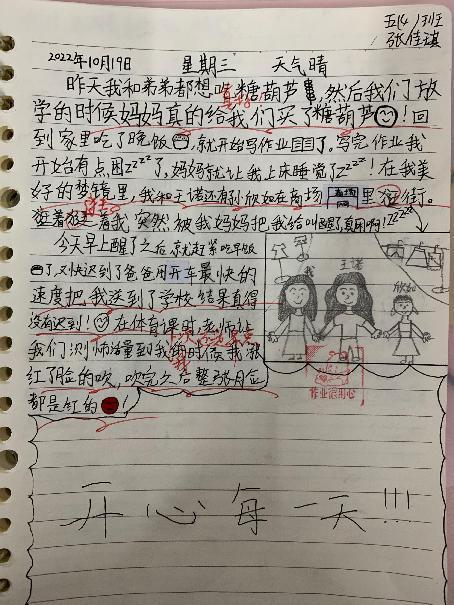 五(4)班
张佳琪
2022年10月19日 星期三 天气晴
昨天我和弟弟都想吃糖葫芦,然后我们放
学的时候妈妈真的给我们买了糖葫芦!回
到家里吃了晚饭,就开始写作业了。写完作业我
开始有点困zzzz了,妈妈就让我上床睡觉了zzzz!在我美
好的梦镜里,我和王诺还有孙欣如在商场里逛街。
逛着逛着我突然被我妈妈把我给叫醒了真困啊!zzzzz
今天早上醒了之后就赶紧吃早饭
了,又快迟到了爸爸用开车最快的
速度把我送到了学校结果真得
没有迟到!在体育课时,老师让
我们测肺活量到我的时候我涨
红了脸的吹,吹完之后整张脸
都是红的!
我
王诺
欣如
作业很用心
开心每一天!!!